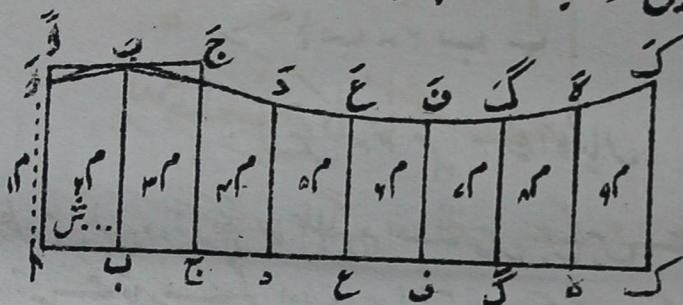 بَ جَ دَ عَ فَ گَ ہَ کَ
م۱ م۲ م۳ م۴ م۵ م۶ م۷ م۸ م۹
ا ب ج د ع ف گ ہ ک